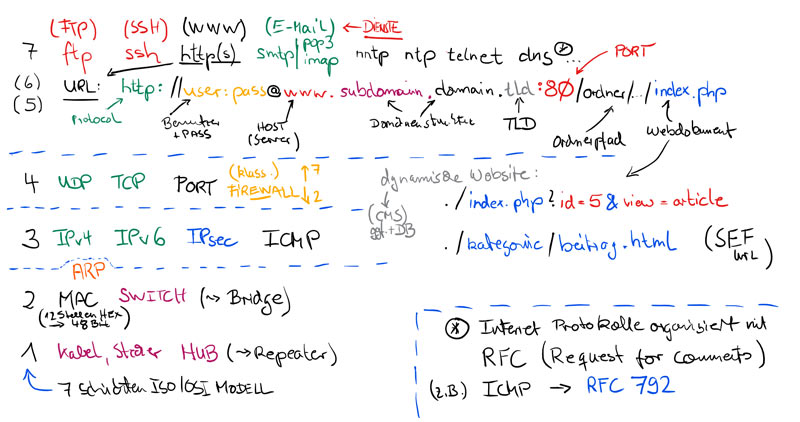 (FTP) (SSH) (WWW) (E-MAIL) ← DIENSTE
7 ftp ssh http(s) smtp/pop3 imap nntp ntp telnet dns * PORT
(6) URL: http://user:pass@www.subdomain.domain.tld:80/ordner/.../index.php
(5)
Protocol Benutzer + PASS HOST (Server) Domänenstruktur TLD Ordnerpfad Webdokument
4 UDP TCP PORT (klass.) FIREWALL ↑7 ↓2
dynamische Website:
./index.php?id=5&view=article
(CMS) ggf.+DB
3 IPv4 IPv6 IPsec ICMP
./kategorie/beitrag.html (SEF URL)
ARP
2 MAC SWITCH (→ Bridge)
(12 Stellen HEX → 48 Bit)
1 Kabel, Stecker HUB (→ Repeater)
7 Schichten ISO/OSI MODELL
* Internet Protokolle organisiert mit
RFC (Request for comments)
(z.B.) ICMP → RFC 792